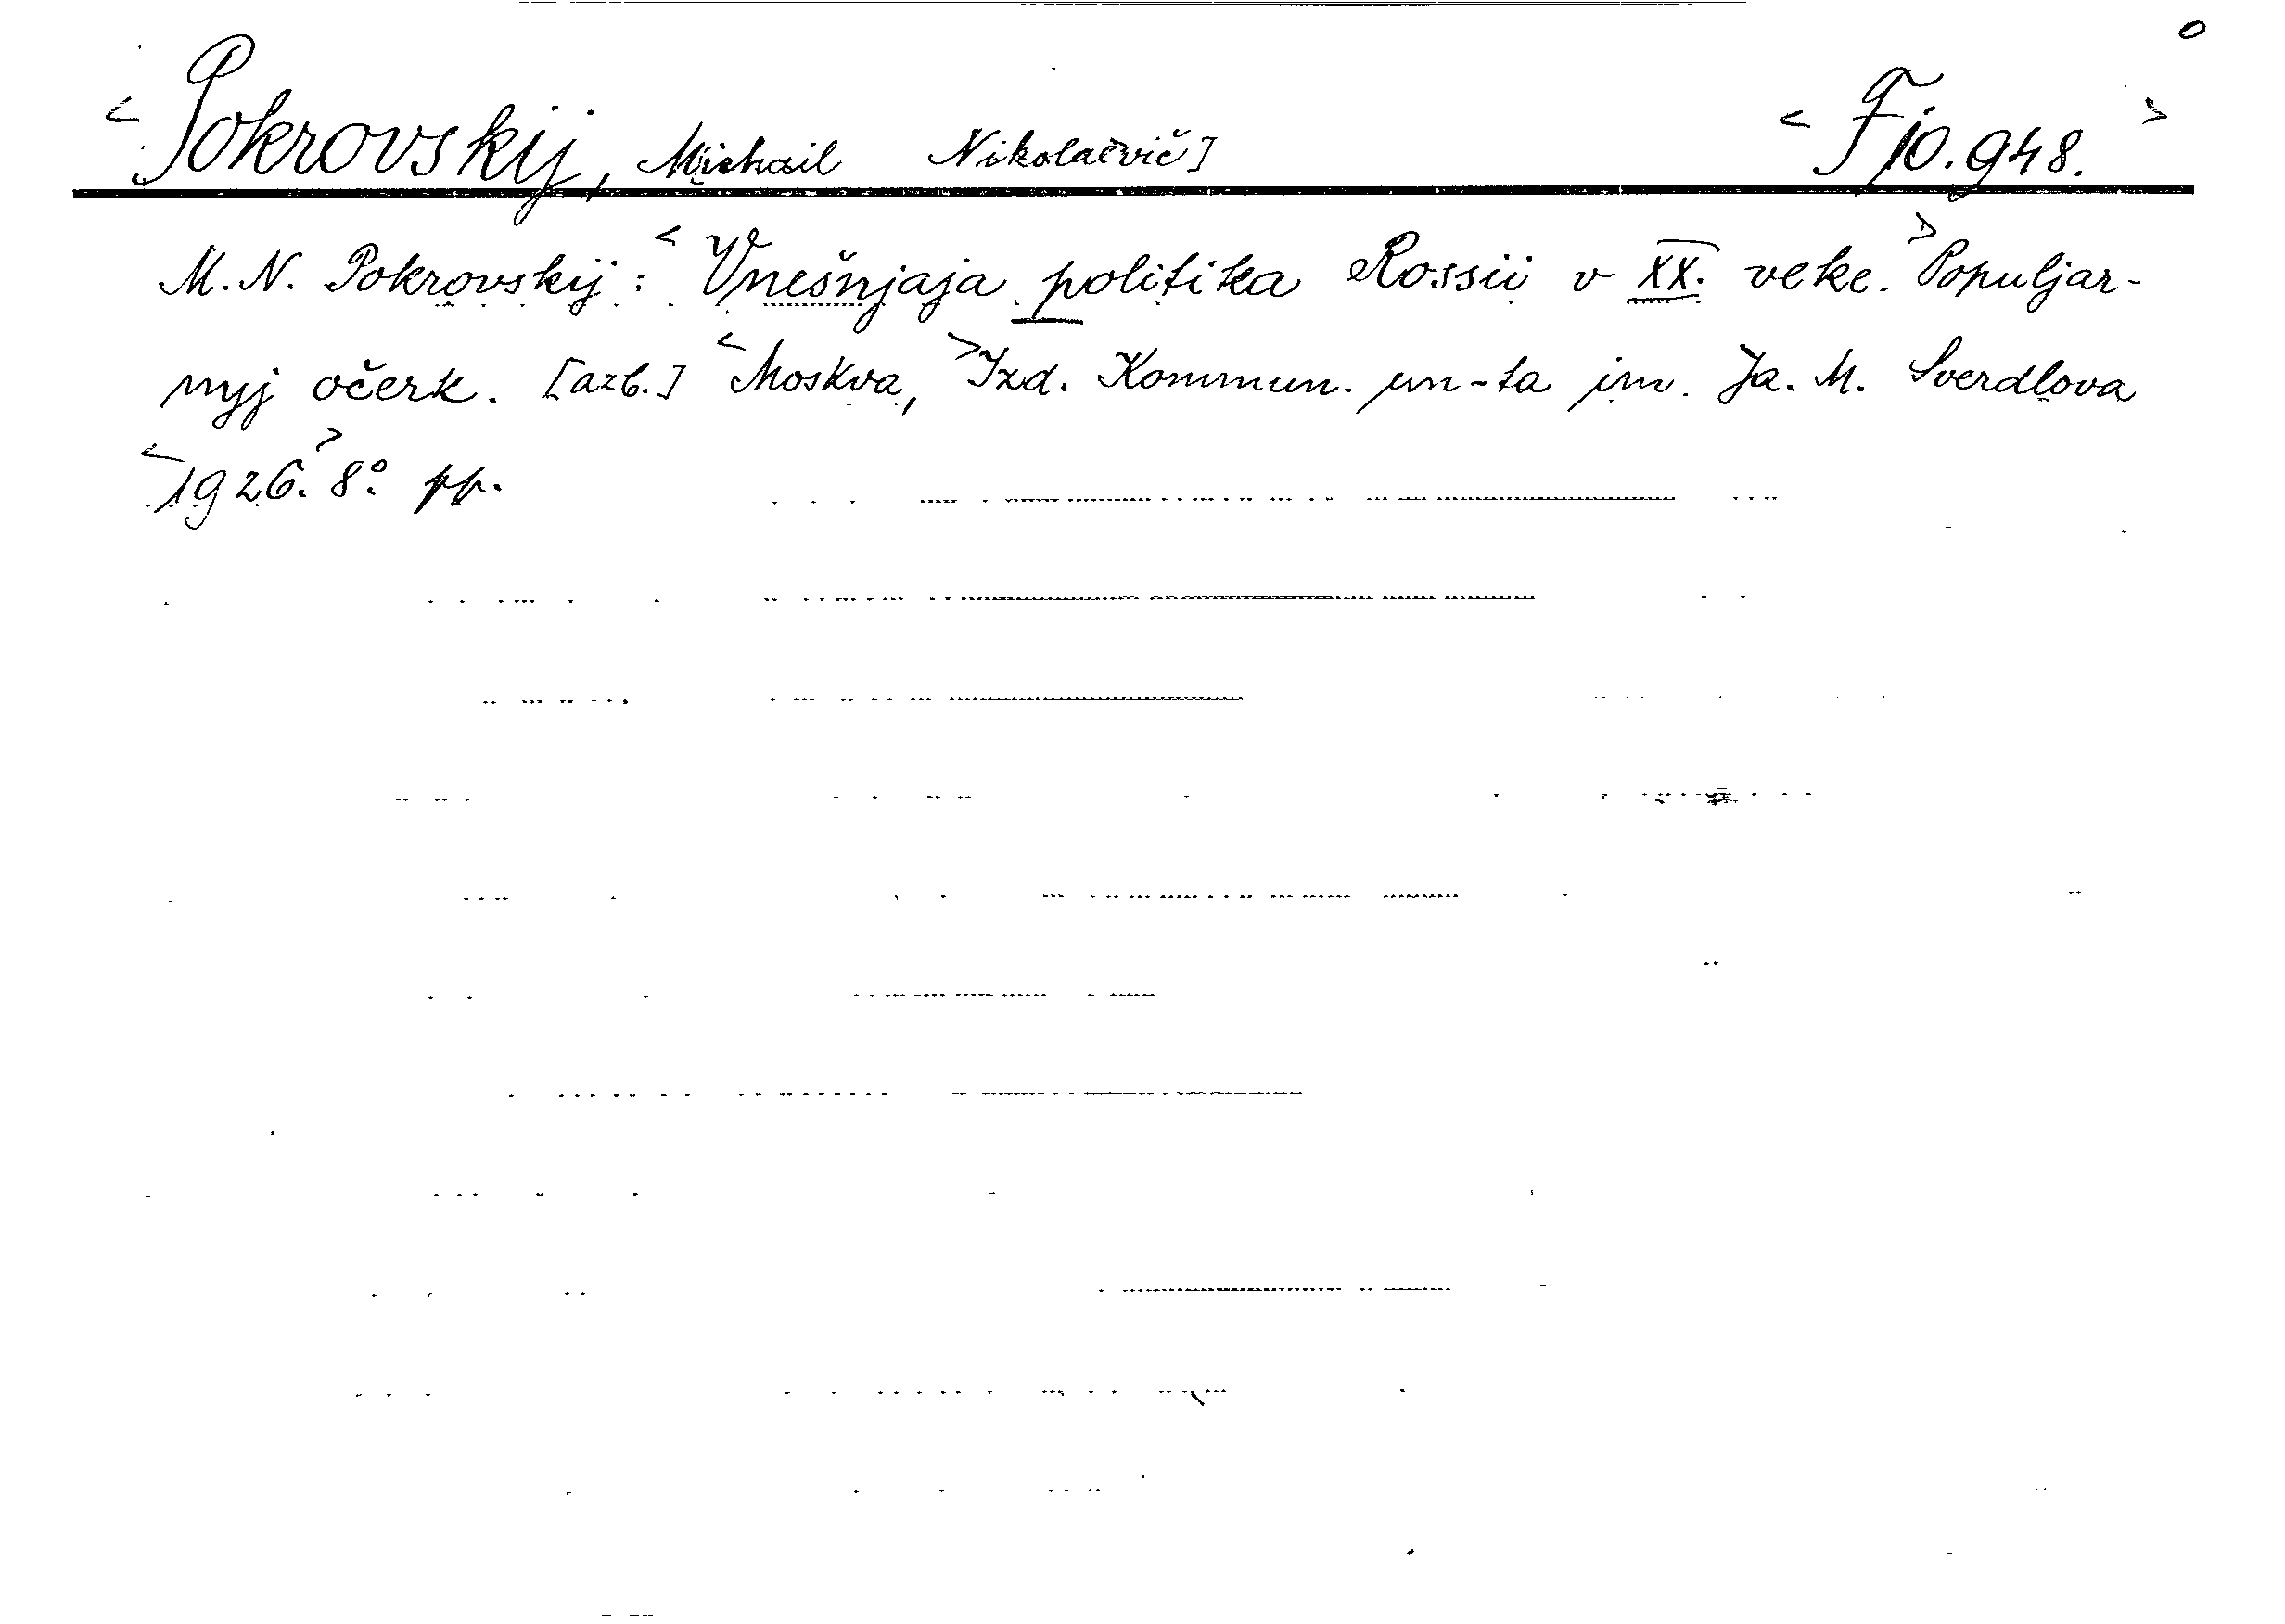 < Pokrovskij, Michail Nikolaevič] < F 10.948. >
M. N. Pokrovskij: < Vnešnjaja politika Rossii v XX. veke. > Populjar-
nyj očerk. [azb.] < Moskva, > Izd. Kommun. un-ta im. Ja. M. Sverdlova
< 1926. > 8° pp.